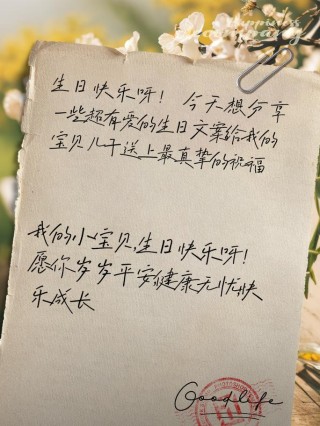 生日快乐呀！ 今天想分享
一些超有爱的生日文案给我的
宝贝儿子送上最真挚的祝福
我的小宝贝,生日快乐呀！
愿你岁岁平安健康无忧快
乐成长
Goodlife